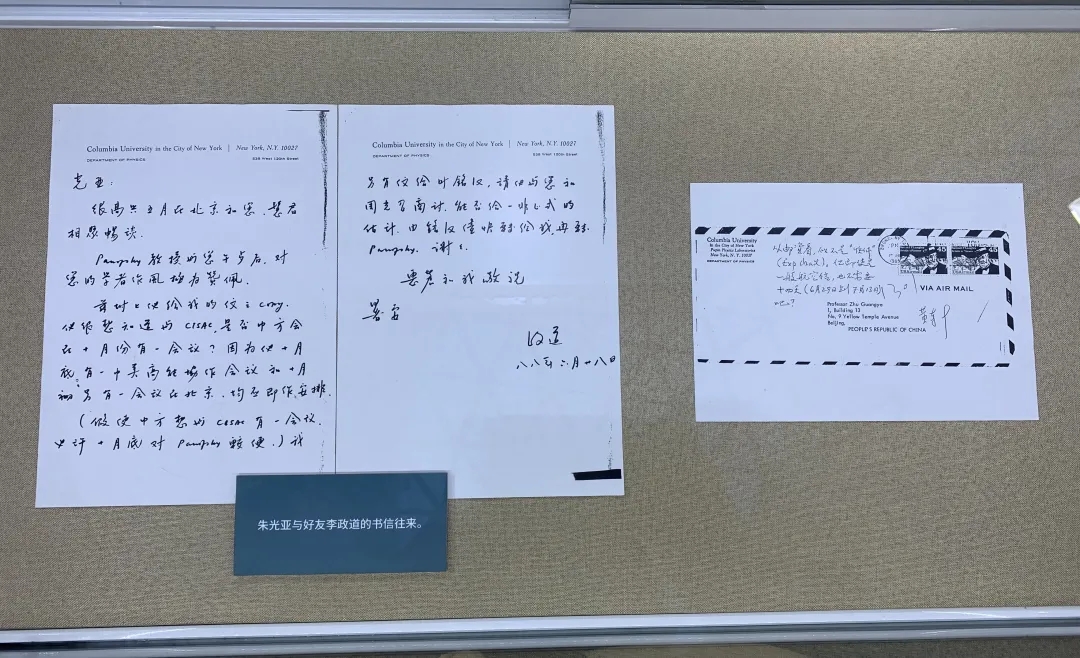 Columbia University in the City of New York | New York, N.Y. 10027
DEPARTMENT OF PHYSICS 538 West 120th Street
光亚：
很高兴五月在北京和您、慧君
相聚畅谈。
Panofsky 教授的
您的学者作风极为赞佩。
附上他给我的信之 copy.
他很想知道的 CISAC, 是否中方会
在十月份有一会议？因为他十月
底有一中美高能协作会议和十月
初另有一会议在北京，均应即作安排.
(假使中方想的 CISAC 有一会议,
也许十月底对 Panofsky 较便.) 我
Columbia University in the City of New York | New York, N.Y. 10027
DEPARTMENT OF PHYSICS 538 West 120th Street
另有信给叶铭汉，请他与您和
周光召商讨，能否给一非正式的
估计，由铭汉尽快转给我再转
Panofsky. 谢谢
惠君和我敬祝
暑安
政道
八八年六月十八日
Columbia University
in the City of New York
New York, N.Y. 10027
DEPARTMENT OF PHYSICS
VIA AIR MAIL
一般航空信，也不需要
十四天(6月29日到7月13日)
吧？
Professor Zhu Guangya
1, Building 13
No. 9 Yellow Temple Avenue
Beijing,
PEOPLE'S REPUBLIC OF CHINA
朱光亚与好友李政道的书信往来。